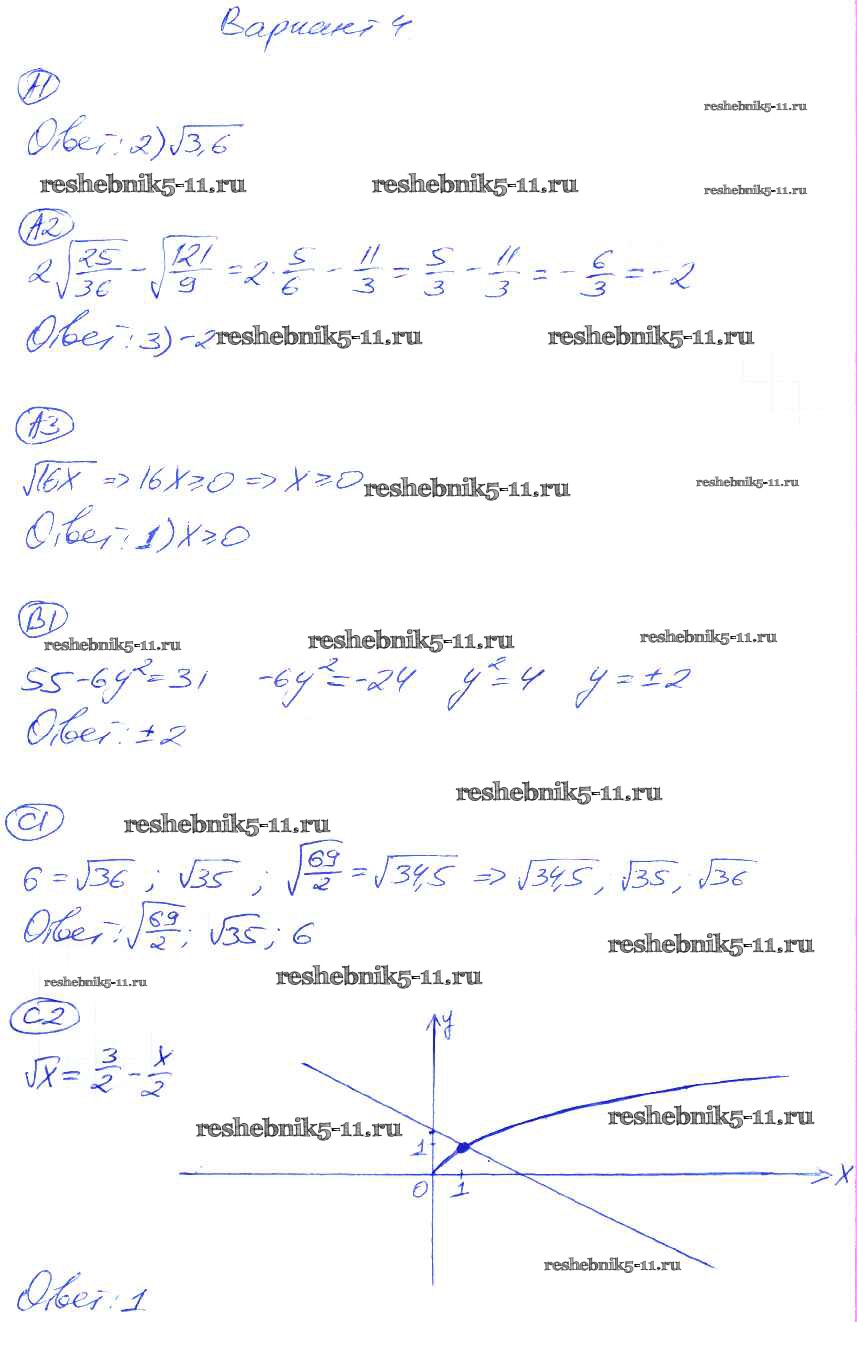 Вариант 4
A1
reshebnik5-11.ru
Ответ: 2) √3,6
reshebnik5-11.ru reshebnik5-11.ru reshebnik5-11.ru
A2
2√25/36 - √121/9 = 2·5/6 - 11/3 = 5/3 - 11/3 = -6/3 = -2
Ответ: 3) -2 reshebnik5-11.ru reshebnik5-11.ru
A3
√16x => 16x ≥ 0 => x ≥ 0 reshebnik5-11.ru reshebnik5-11.ru
Ответ: 1) x ≥ 0
B1
reshebnik5-11.ru reshebnik5-11.ru reshebnik5-11.ru
55 - 6y² = 31 -6y² = -24 y² = 4 y = ±2
Ответ: ±2
reshebnik5-11.ru
C1
reshebnik5-11.ru
6 = √36 ; √35 ; √69/2 = √34,5 => √34,5, √35, √36
Ответ: √69/2; √35; 6
reshebnik5-11.ru
reshebnik5-11.ru reshebnik5-11.ru
C2
y
√x = 3/2 - x/2
reshebnik5-11.ru reshebnik5-11.ru
1
x
0 1
reshebnik5-11.ru
Ответ: 1